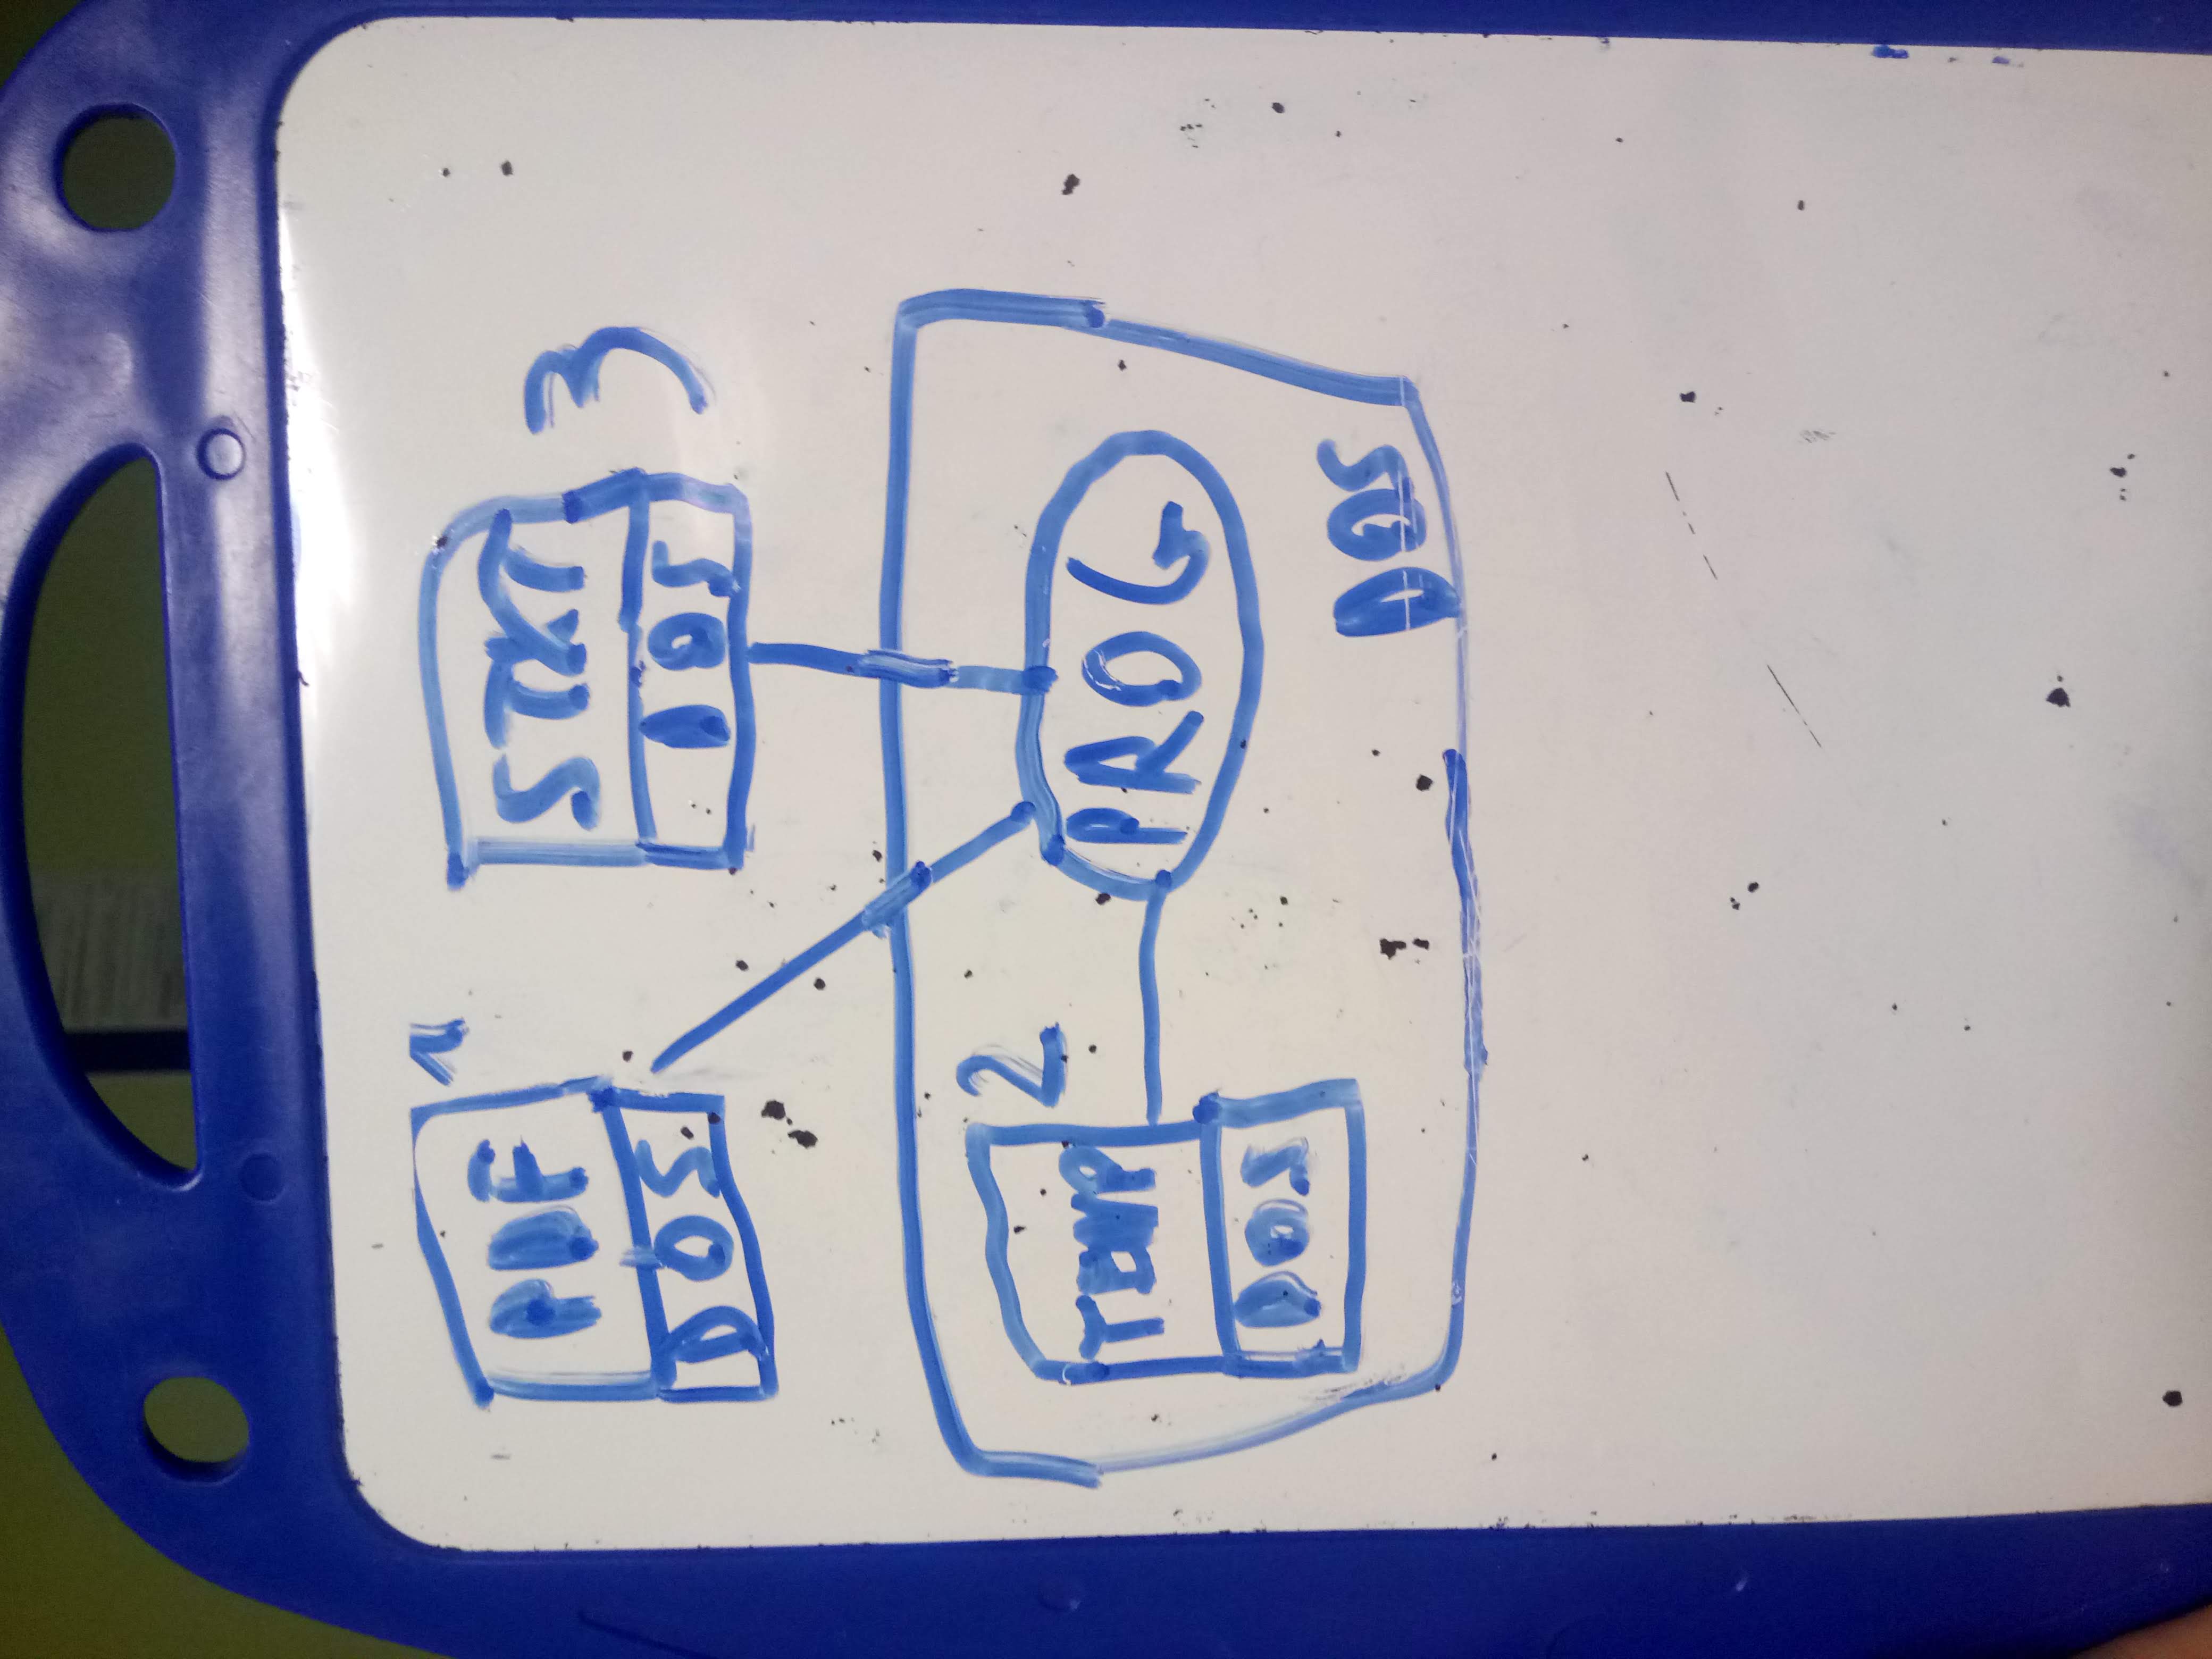 PDF 1
DOS
STXT
DOS 3
TEMP 2
DOS
PROG
DOS